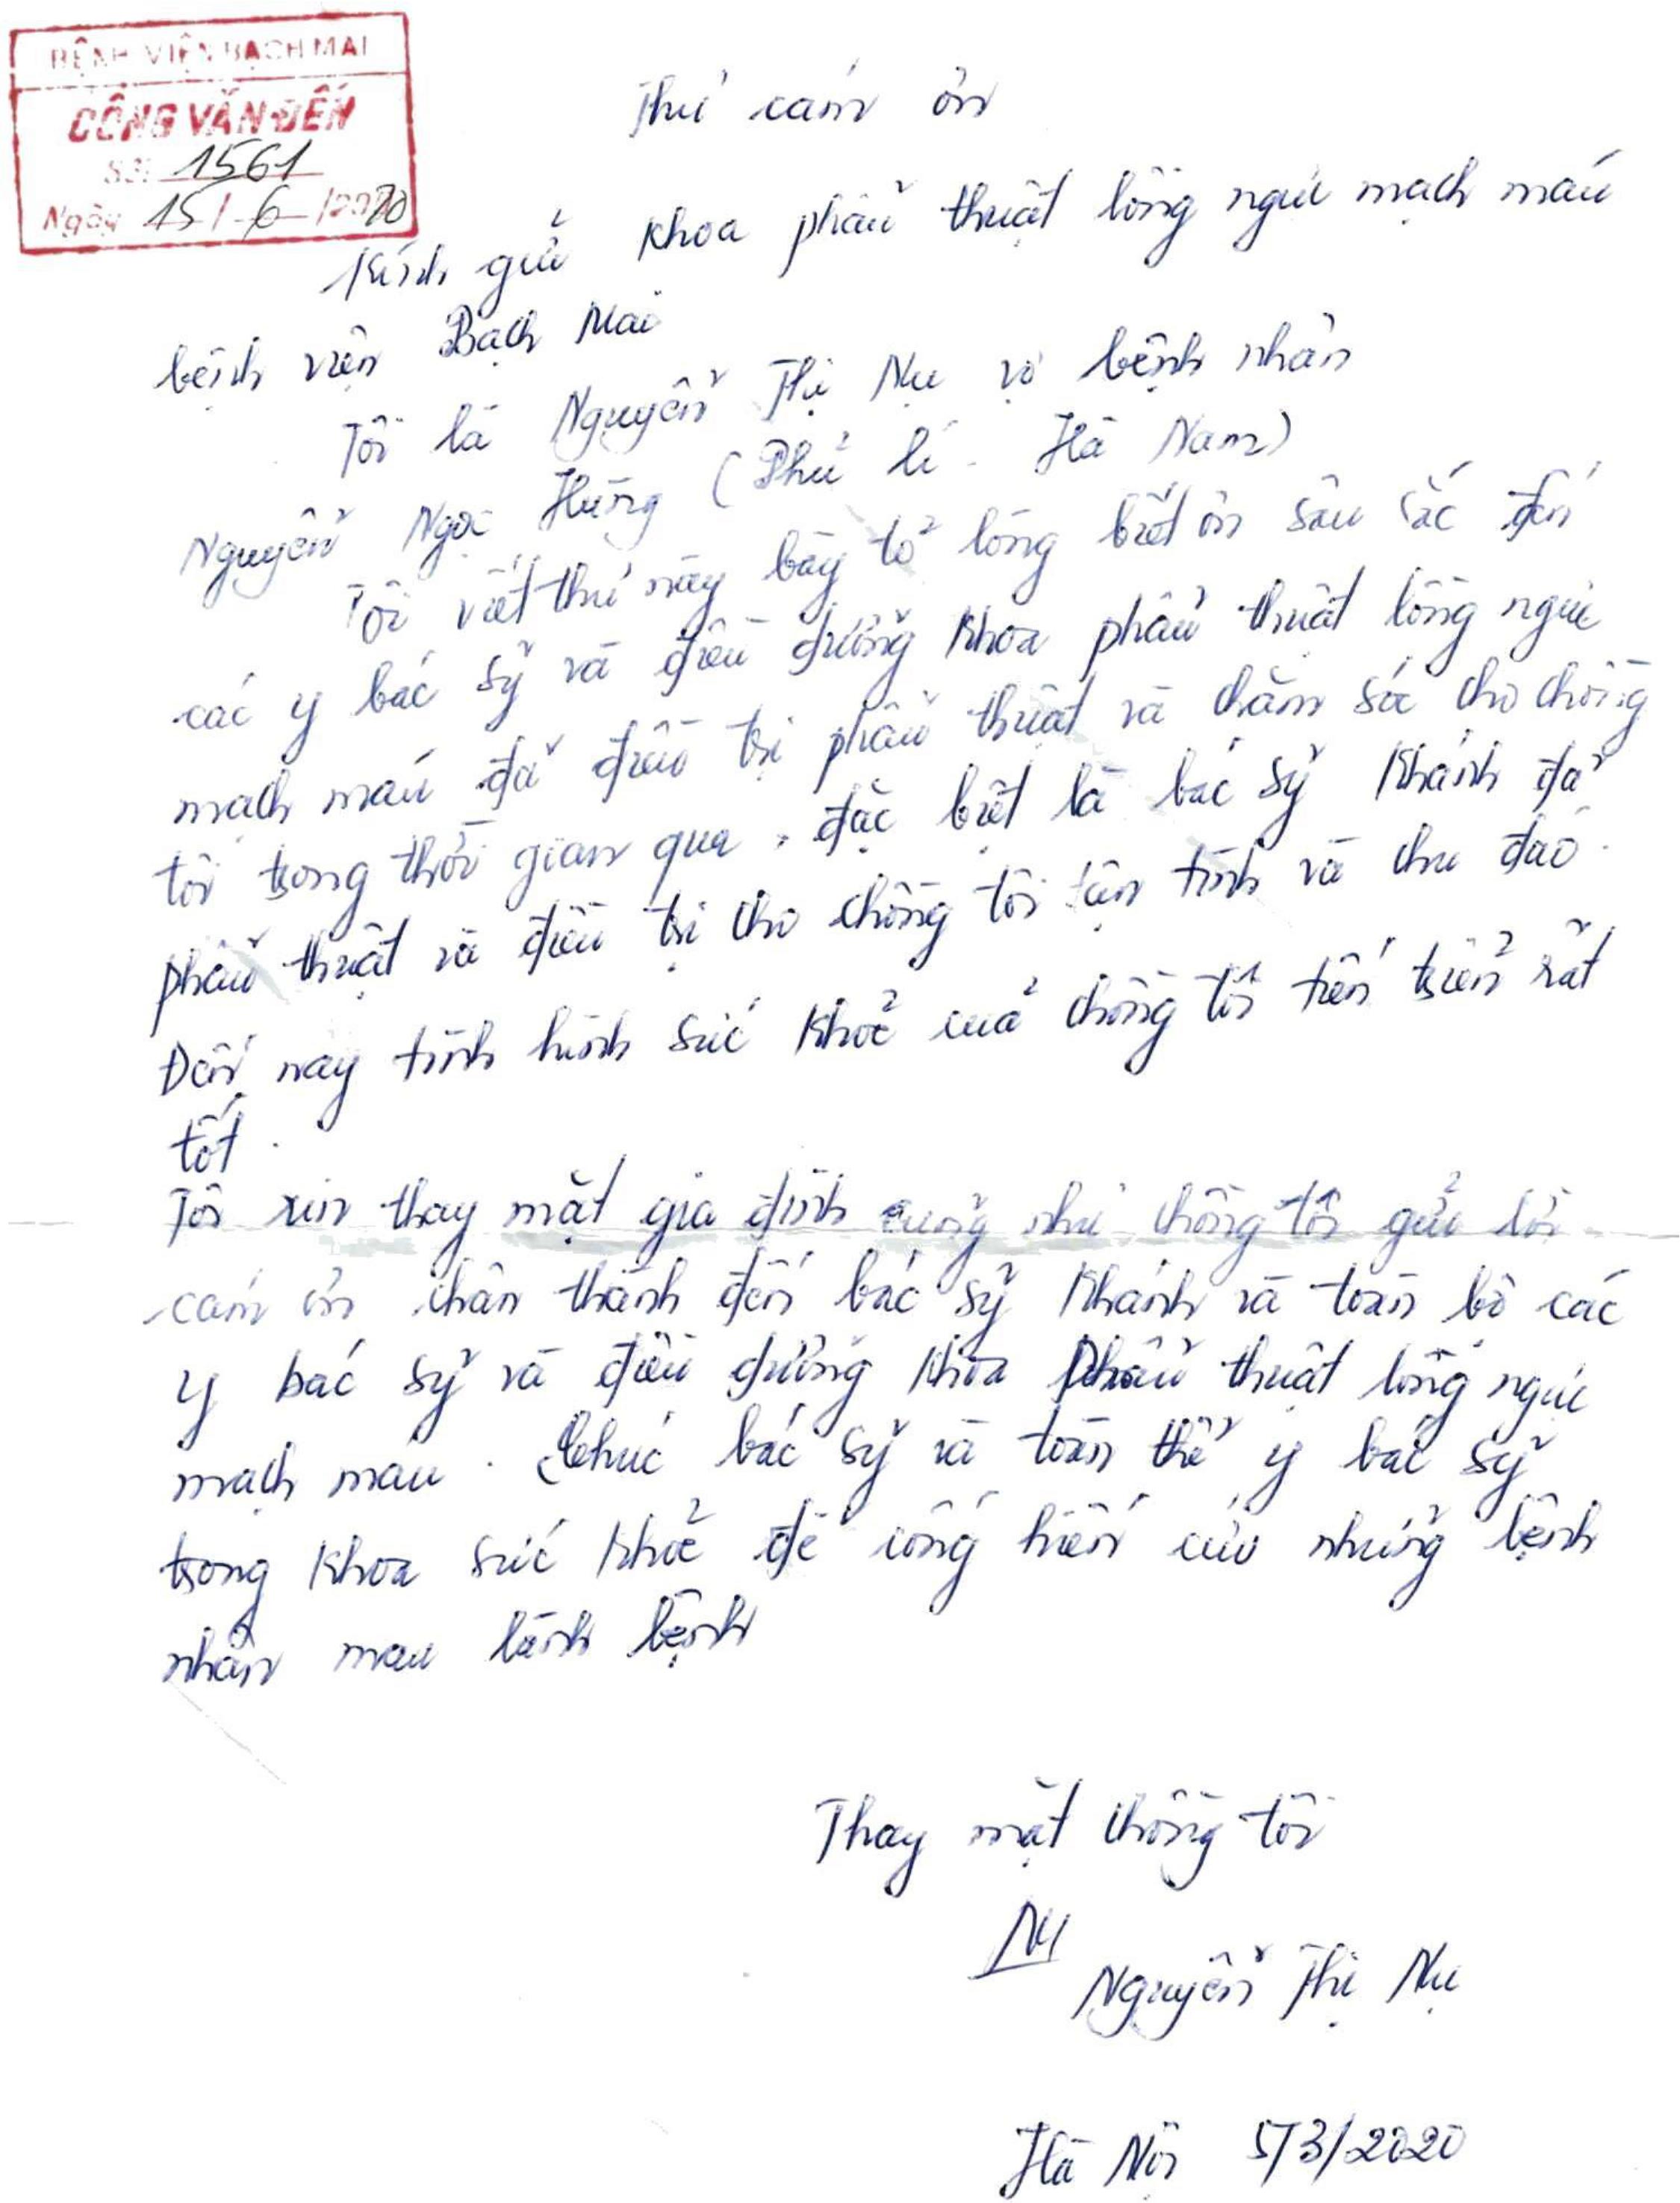 BỆNH VIỆN BẠCH MAI
CÔNG VĂN ĐẾN
Số: 1561
Ngày 15/6/2020
Thư cám ơn
Kính gửi khoa phẫu thuật lồng ngực mạch máu
bệnh viện Bạch Mai
Tôi là Nguyễn Thị Nụ vợ bệnh nhân
Nguyễn Ngọc Hùng (Phủ lí - Hà Nam)
Tôi viết thư này bày tỏ lòng biết ơn sâu sắc đến
các y bác sỹ và điều dưỡng khoa phẫu thuật lồng ngực
mạch máu đã điều trị phẫu thuật và chăm sóc cho chồng
tôi trong thời gian qua, đặc biệt là bác sỹ Khánh đã
phẫu thuật và điều trị cho chồng tôi tận tình và chu đáo.
Đến nay tình hình sức khoẻ của chồng tôi tiến triển rất
tốt.
Tôi xin thay mặt gia đình cũng như chồng tôi gửi lời
cám ơn chân thành đến bác sỹ Khánh và toàn bộ các
y bác sỹ và điều dưỡng khoa Phẫu thuật lồng ngực
mạch máu. Chúc bác sỹ và toàn thể y bác sỹ
trong khoa sức khoẻ để cống hiến cứu những bệnh
nhân mau lành bệnh
Thay mặt chồng tôi
Nụ
Nguyễn Thị Nụ
Hà Nội 5/3/2020